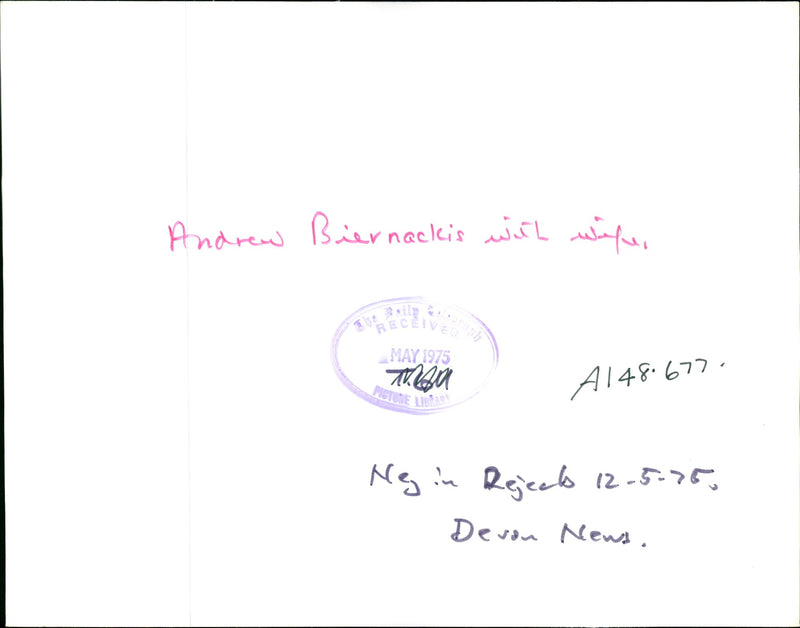 Andrew Biernackis with wife.
The Daily Telegraph
RECEIVED
MAY 1975
PICTURE LIBRARY
A148.677.
Neg in Rejects 12-5-75.
Devon News.